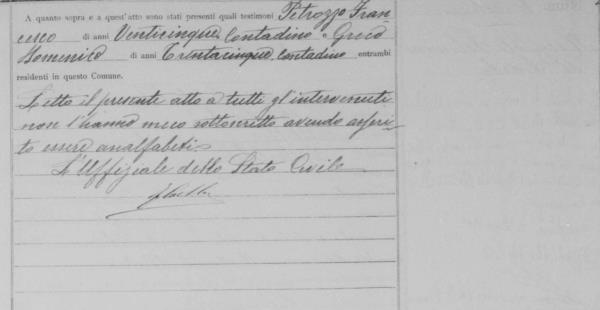 A quanto sopra e a quest'atto sono stati presenti quali testimoni Petrozzo Fran
cesco di anni Venticinque, Contadino e Greco
Domenico di anni Trentacinque, Contadino entrambi
residenti in questo Comune.
Letto il presente atto a tutti gl'intervenuti
non l'hanno meco sottoscritto avendo asseri-
to essere analfabeti.
L'Uffiziale dello Stato Civile